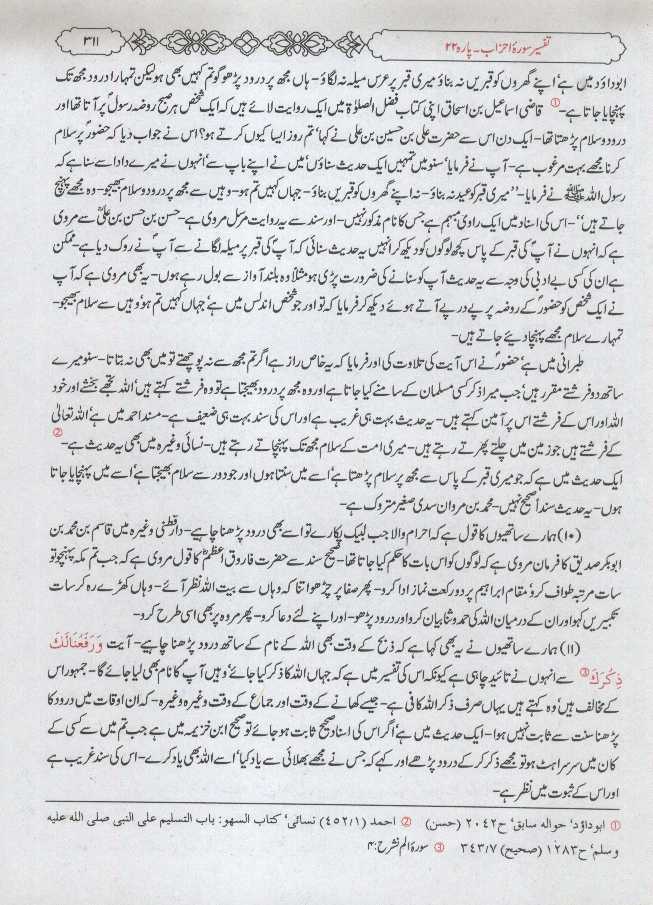 تفسیر سورۂ احزاب۔ پارہ ۲۲
۳۱۱
ابوداؤد میں ہے' اپنے گھروں کو قبریں نہ بناؤ میری قبر پر عرس میلہ نہ لگاؤ۔ ہاں مجھ پر درود پڑھو گو تم کہیں بھی ہو لیکن تمہارا درود مجھ تک
پہنچایا جاتا ہے۔① قاضی اسماعیل بن اسحاق اپنی کتاب فضل الصلوٰۃ میں ایک روایت لائے ہیں کہ ایک شخص ہر صبح روضہ رسولؐ پر آتا تھا اور
درود و سلام پڑھتا تھا۔ ایک دن اس سے حضرت علی بن حسین بن علی نے کہا' تم روز ایسا کیوں کرتے ہو؟ اس نے جواب دیا کہ حضورؐ پر سلام
کرنا مجھے بہت مرغوب ہے۔ آپ نے فرمایا' سنو میں تمہیں ایک حدیث سناؤں' میں نے اپنے باپ سے' انہوں نے میرے دادا سے سنا ہے کہ
رسول اللہ ﷺ نے فرمایا۔ ''میری قبر کو عید نہ بناؤ۔ نہ اپنے گھروں کو قبریں بناؤ۔ جہاں کہیں تم ہو۔ وہیں سے مجھ پر درود و سلام بھیجو۔ وہ مجھے پہنچ
جاتے ہیں''۔ اس کی اسناد میں ایک راوی مبہم ہے جس کا نام مذکور نہیں۔ اور سند سے یہ روایت مرسل مروی ہے۔ حسن بن حسن بن علیؓ سے مروی
ہے کہ انہوں نے آپؐ کی قبر کے پاس کچھ لوگوں کو دیکھ کر انہیں یہ حدیث سنائی کہ آپؐ کی قبر پر میلہ لگانے سے آپؐ نے روک دیا ہے۔ ممکن
ہے ان کی کسی بے ادبی کی وجہ سے یہ حدیث آپ کو سنانے کی ضرورت پڑی ہو مثلاً وہ بلند آواز سے بول رہے ہوں۔ یہ بھی مروی ہے کہ آپ
نے ایک شخص کو حضورؐ کے روضہ پر پے در پے آتے ہوئے دیکھ کر فرمایا کہ تو اور جو شخص اندلس میں ہے' جہاں کہیں تم ہو' وہیں سے سلام بھیجو۔
تمہارے سلام مجھے پہنچا دیئے جاتے ہیں۔
طبرانی میں ہے' حضورؐ نے اس آیت کی تلاوت کی اور فرمایا کہ یہ خاص راز ہے اگر تم مجھ سے نہ پوچھتے تو میں بھی نہ بتاتا۔ سنو میرے
ساتھ دو فرشتے مقرر ہیں' جب میرا ذکر کسی مسلمان کے سامنے کیا جاتا ہے اور وہ مجھ پر درود بھیجتا ہے تو وہ فرشتے کہتے ہیں' اللہ تجھے بخشے اور خود
اللہ اور اس کے فرشتے اس پر آمین کہتے ہیں۔ یہ حدیث بہت ہی غریب ہے اور اس کی سند بہت ہی ضعیف ہے۔ مسند احمد میں ہے' اللہ تعالیٰ
کے فرشتے ہیں جو زمین میں چلتے پھرتے رہتے ہیں۔ میری امت کے سلام مجھ تک پہنچاتے رہتے ہیں۔ نسائی وغیرہ میں بھی یہ حدیث ہے۔②
ایک حدیث میں ہے کہ جو میری قبر کے پاس سے مجھ پر سلام پڑھتا ہے' اسے میں سنتا ہوں اور جو دور سے سلام بھیجتا ہے' اسے میں پہنچایا جاتا
ہوں۔ یہ حدیث سنداً صحیح نہیں۔ محمد بن مروان سدی صغیر متروک ہے۔
(۱۰) ہمارے ساتھیوں کا قول ہے کہ احرام والا جب لبیک پکارے تو اسے بھی درود پڑھنا چاہیے۔ دارقطنی وغیرہ میں قاسم بن محمد بن
ابوبکر صدیق کا فرمان مروی ہے کہ لوگوں کو اس بات کا حکم کیا جاتا تھا۔ صحیح سند سے حضرت فاروق اعظمؓ کا قول مروی ہے کہ جب تم مکہ پہنچو تو
سات مرتبہ طواف کرو' مقام ابراہیم پر دو رکعت نماز ادا کرو۔ پھر صفا پر چڑھو اتنا کہ وہاں سے بیت اللہ نظر آئے۔ وہاں کھڑے رہ کر سات
تکبیریں کہو اور ان کے درمیان اللہ کی حمد و ثنا بیان کرو اور درود پڑھو۔ اور اپنے لئے دعا کرو۔ پھر مروہ پر بھی اسی طرح کرو۔
(۱۱) ہمارے ساتھیوں نے یہ بھی کہا ہے کہ ذبح کے وقت بھی اللہ کے نام کے ساتھ درود پڑھنا چاہیے۔ آیت وَرَفَعْنَا لَكَ
ذِكْرَكَ③ سے انہوں نے تائید چاہی ہے کیونکہ اس کی تفسیر میں ہے کہ جہاں اللہ کا ذکر کیا جائے' وہیں آپؐ کا نام بھی لیا جائے گا۔ جمہور اس
کے مخالف ہیں' وہ کہتے ہیں یہاں صرف ذکر اللہ کافی ہے۔ جیسے کھانے کے وقت اور جماع کے وقت وغیرہ وغیرہ۔ کہ ان اوقات میں درود کا
پڑھنا سنت سے ثابت نہیں ہوا۔ ایک حدیث میں ہے' اگر اس کی اسناد صحیح ثابت ہو جائے تو صحیح ابن خزیمہ میں ہے جب تم میں سے کسی کے
کان میں سرسراہٹ ہو تو مجھے ذکر کر کے درود پڑھے اور کہے کہ جس نے مجھے بھلائی سے یاد کیا' اسے اللہ بھی یاد کرے۔ اس کی سند غریب ہے
اور اس کے ثبوت میں نظر ہے۔
① ابوداؤد' حوالہ سابق' ح ۲۰۴۲ (حسن) ② احمد (۴۵۲/۱) نسائی' کتاب السھو: باب التسلیم علی النبی صلی اللہ علیہ
وسلم' ح ۱۲۸۳ (صحیح) ۳۴۳/۷ ③ سورۂ الم نشرح: ۴